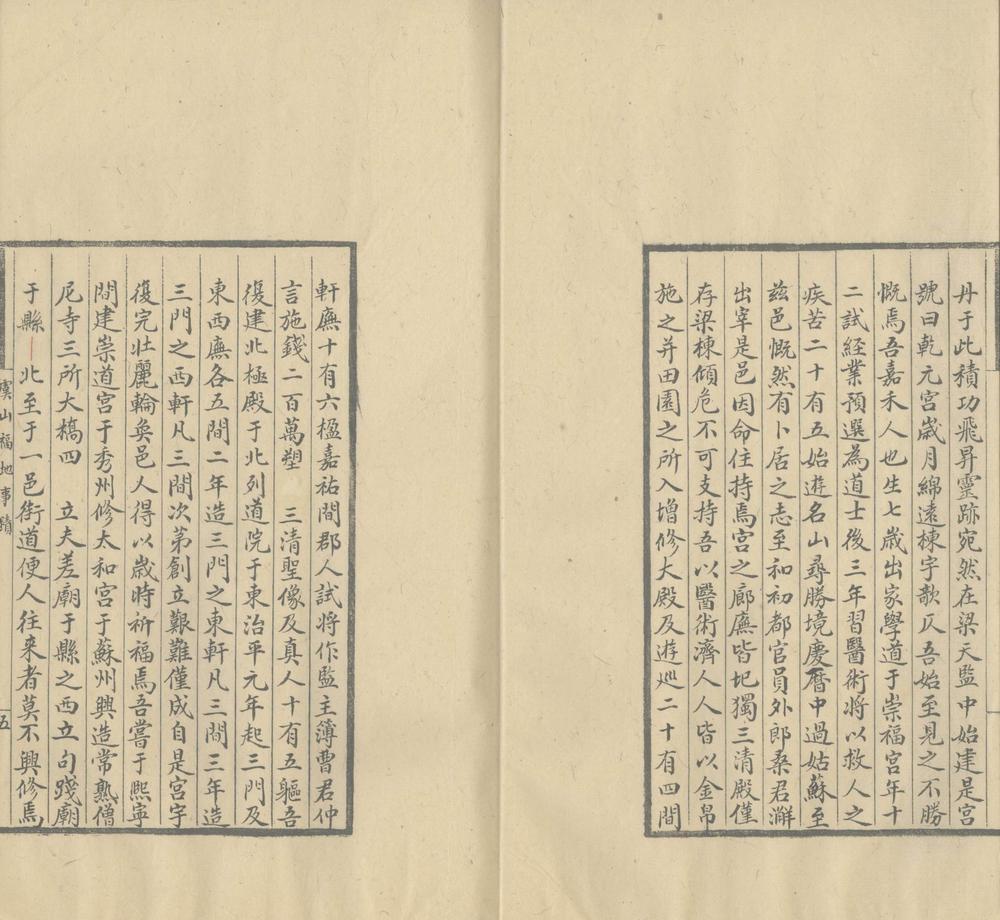 丹于此積功飛昇靈跡宛然在梁天監中始建是宮
號曰乾元宮歲月綿遠棟宇欹仄吾始至見之不勝
慨焉吾嘉禾人也生七歲出家學道于崇福宮年十
二試經業預選為道士後三年習醫術將以救人之
疾苦二十有五始遊名山尋勝境慶曆中過姑蘇至
茲邑慨然有卜居之志至和初都官員外郎桑君澥
出宰是邑因命住持焉宮之廊廡皆圮獨三清殿僅
存梁棟傾危不可支持吾以醫術濟人人皆以金帛
施之并田園之所入增修大殿及遊廵二十有四間
軒廡十有六楹嘉祐間郡人試將作監主簿曹君仲
言施錢二百萬塑 三清聖像及真人十有五軀吾
復建北極殿于北列道院于東治平元年起三門及
東西廡各五間二年造三門之東軒凡三間三年造
三門之西軒凡三間次第創立艱難僅成自是宮宇
復完壯麗輪奐邑人得以歲時祈福焉吾嘗于熙寧
間建崇道宮于秀州修太和宮于蘇州興造常熟僧
尼寺三所大橋四 立夫差廟于縣之西立句踐廟
于縣 北至于一邑街道便人往來者莫不興修焉
虞山福地事蹟
五